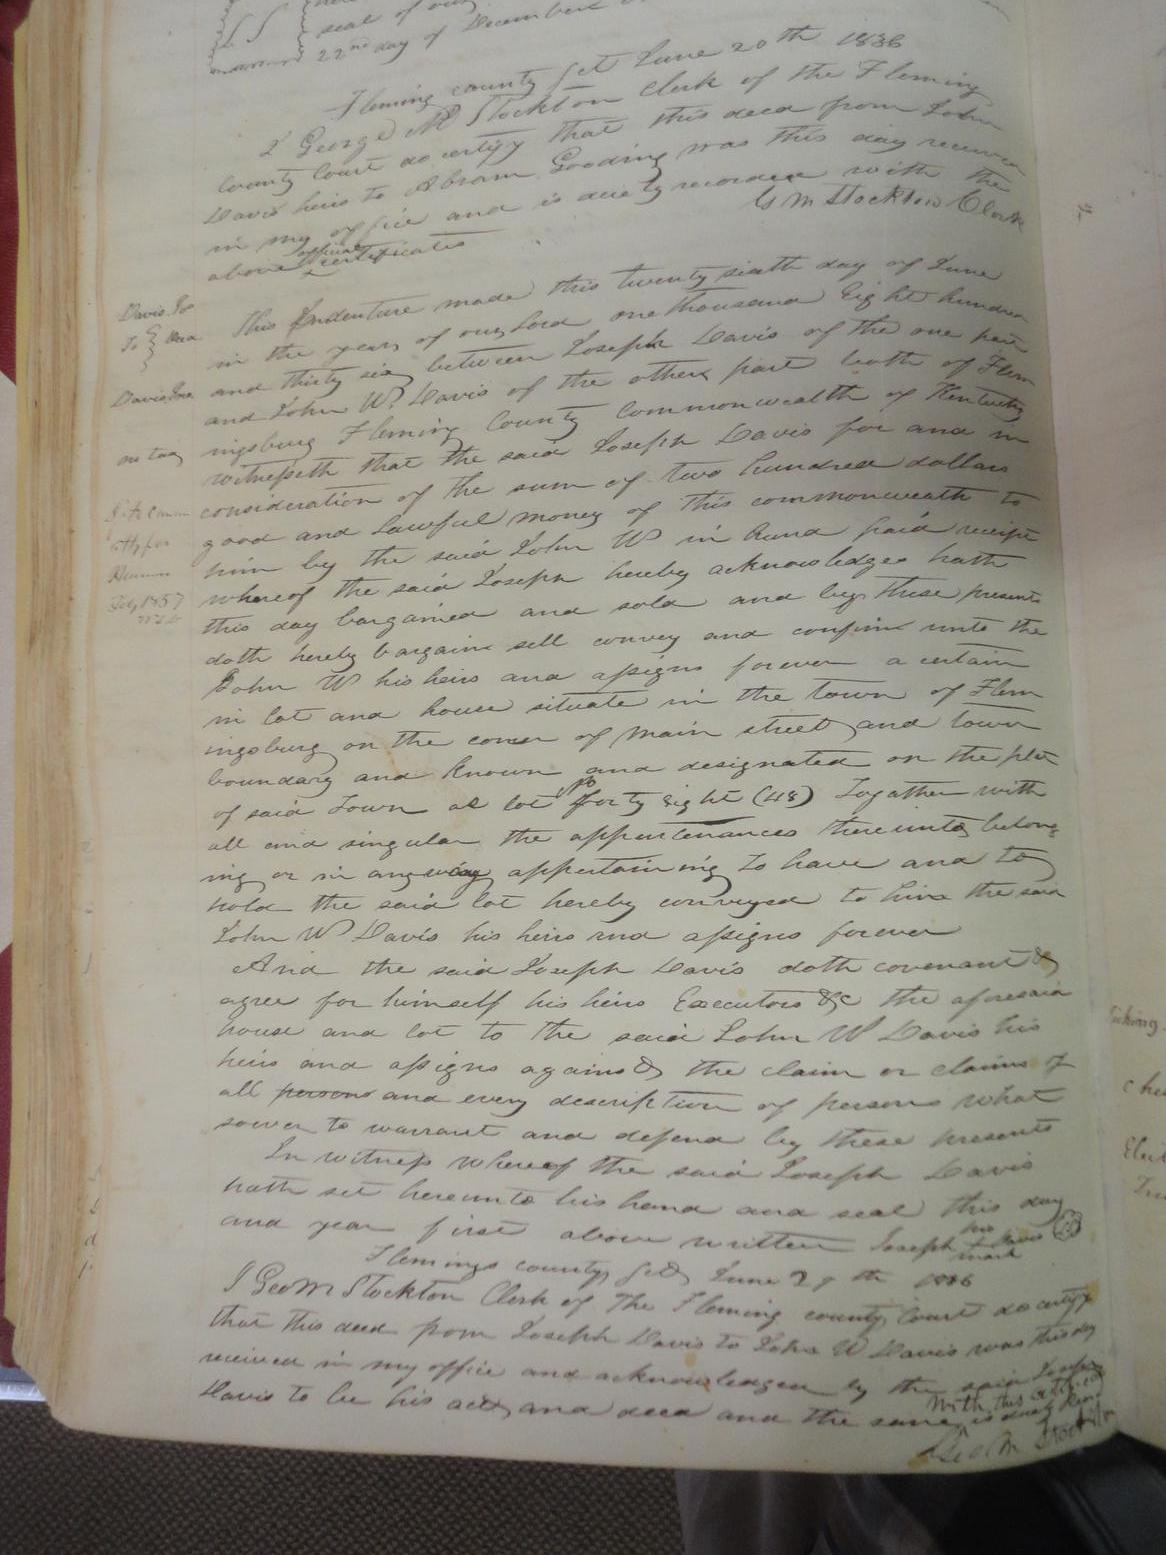 seal of our
22nd day of December
Fleming county Sct June 20th 1836
I George M Stockton Clerk of the Fleming
County Court do certify that this deed from John
Davis heirs to Abram Gooding was this day received
in my office and is duly recorded with the
above official certificates
G M Stockton Clerk
Davis Jos
To } Deed
Davis Jno
This Indenture made this twenty sixth day of June
in the year of our Lord one thousand Eight hundred
and thirty six between Joseph Davis of the one part
and John W. Davis of the other part both of Flem
ingsburg Fleming County Commonwealth of Kentucky
witnesseth that the said Joseph Davis for and in
consideration of the sum of two hundred dollars
good and lawful money of this commonwealth to
him by the said John W in hand paid receipt
whereof the said Joseph hereby acknowledges hath
this day bargained and sold and by these presents
doth hereby bargain sell convey and confirm unto the
John W his heirs and assigns forever a certain
in lot and house situate in the town of Flem
ingsburg on the corner of main street and town
boundary and known and designated on the plat
of said Town as lot No forty eight (48) Together with
all and singular the appurtenances thereunto belong
ing or in anyway appertaining to have and to
hold the said lot hereby conveyed to him the said
John W Davis his heirs and assigns forever
And the said Joseph Davis doth covenant &
agree for himself his heirs Executors &c the aforesaid
house and lot to the said John W Davis his
heirs and assigns against the claim or claims of
all persons and every description of persons what
soever to warrant and defend by these presents
In witness whereof the said Joseph Davis
hath set hereunto his hand and seal this day
and year first above written Joseph his + mark Davis
Fleming county Sct June 27th 1836
I Geo M Stockton Clerk of the Fleming county Court do certify
that this deed from Joseph Davis to John W Davis was this day
received in my office and acknowledged by the said Joseph
Davis to be his act and deed and the same with this certificate is duly
Geo M Stockton